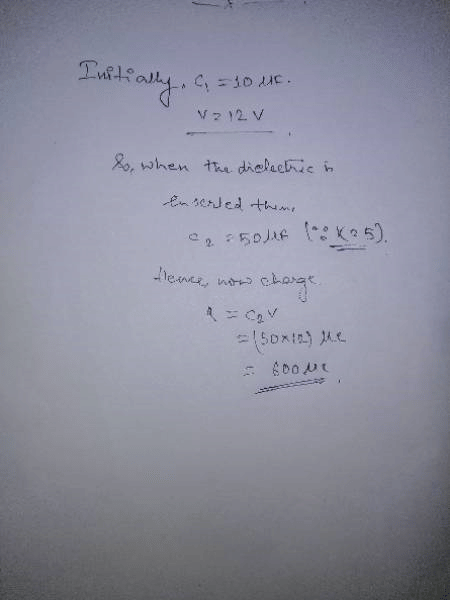 Initially, C₁ = 10 μF.
V = 12 V
So, when the dielectric is
inserted then,
C₂ = 50 μF (∵ K = 5).
Hence, now charge
q = C₂V
= (50×12) μC
= 600 μC.